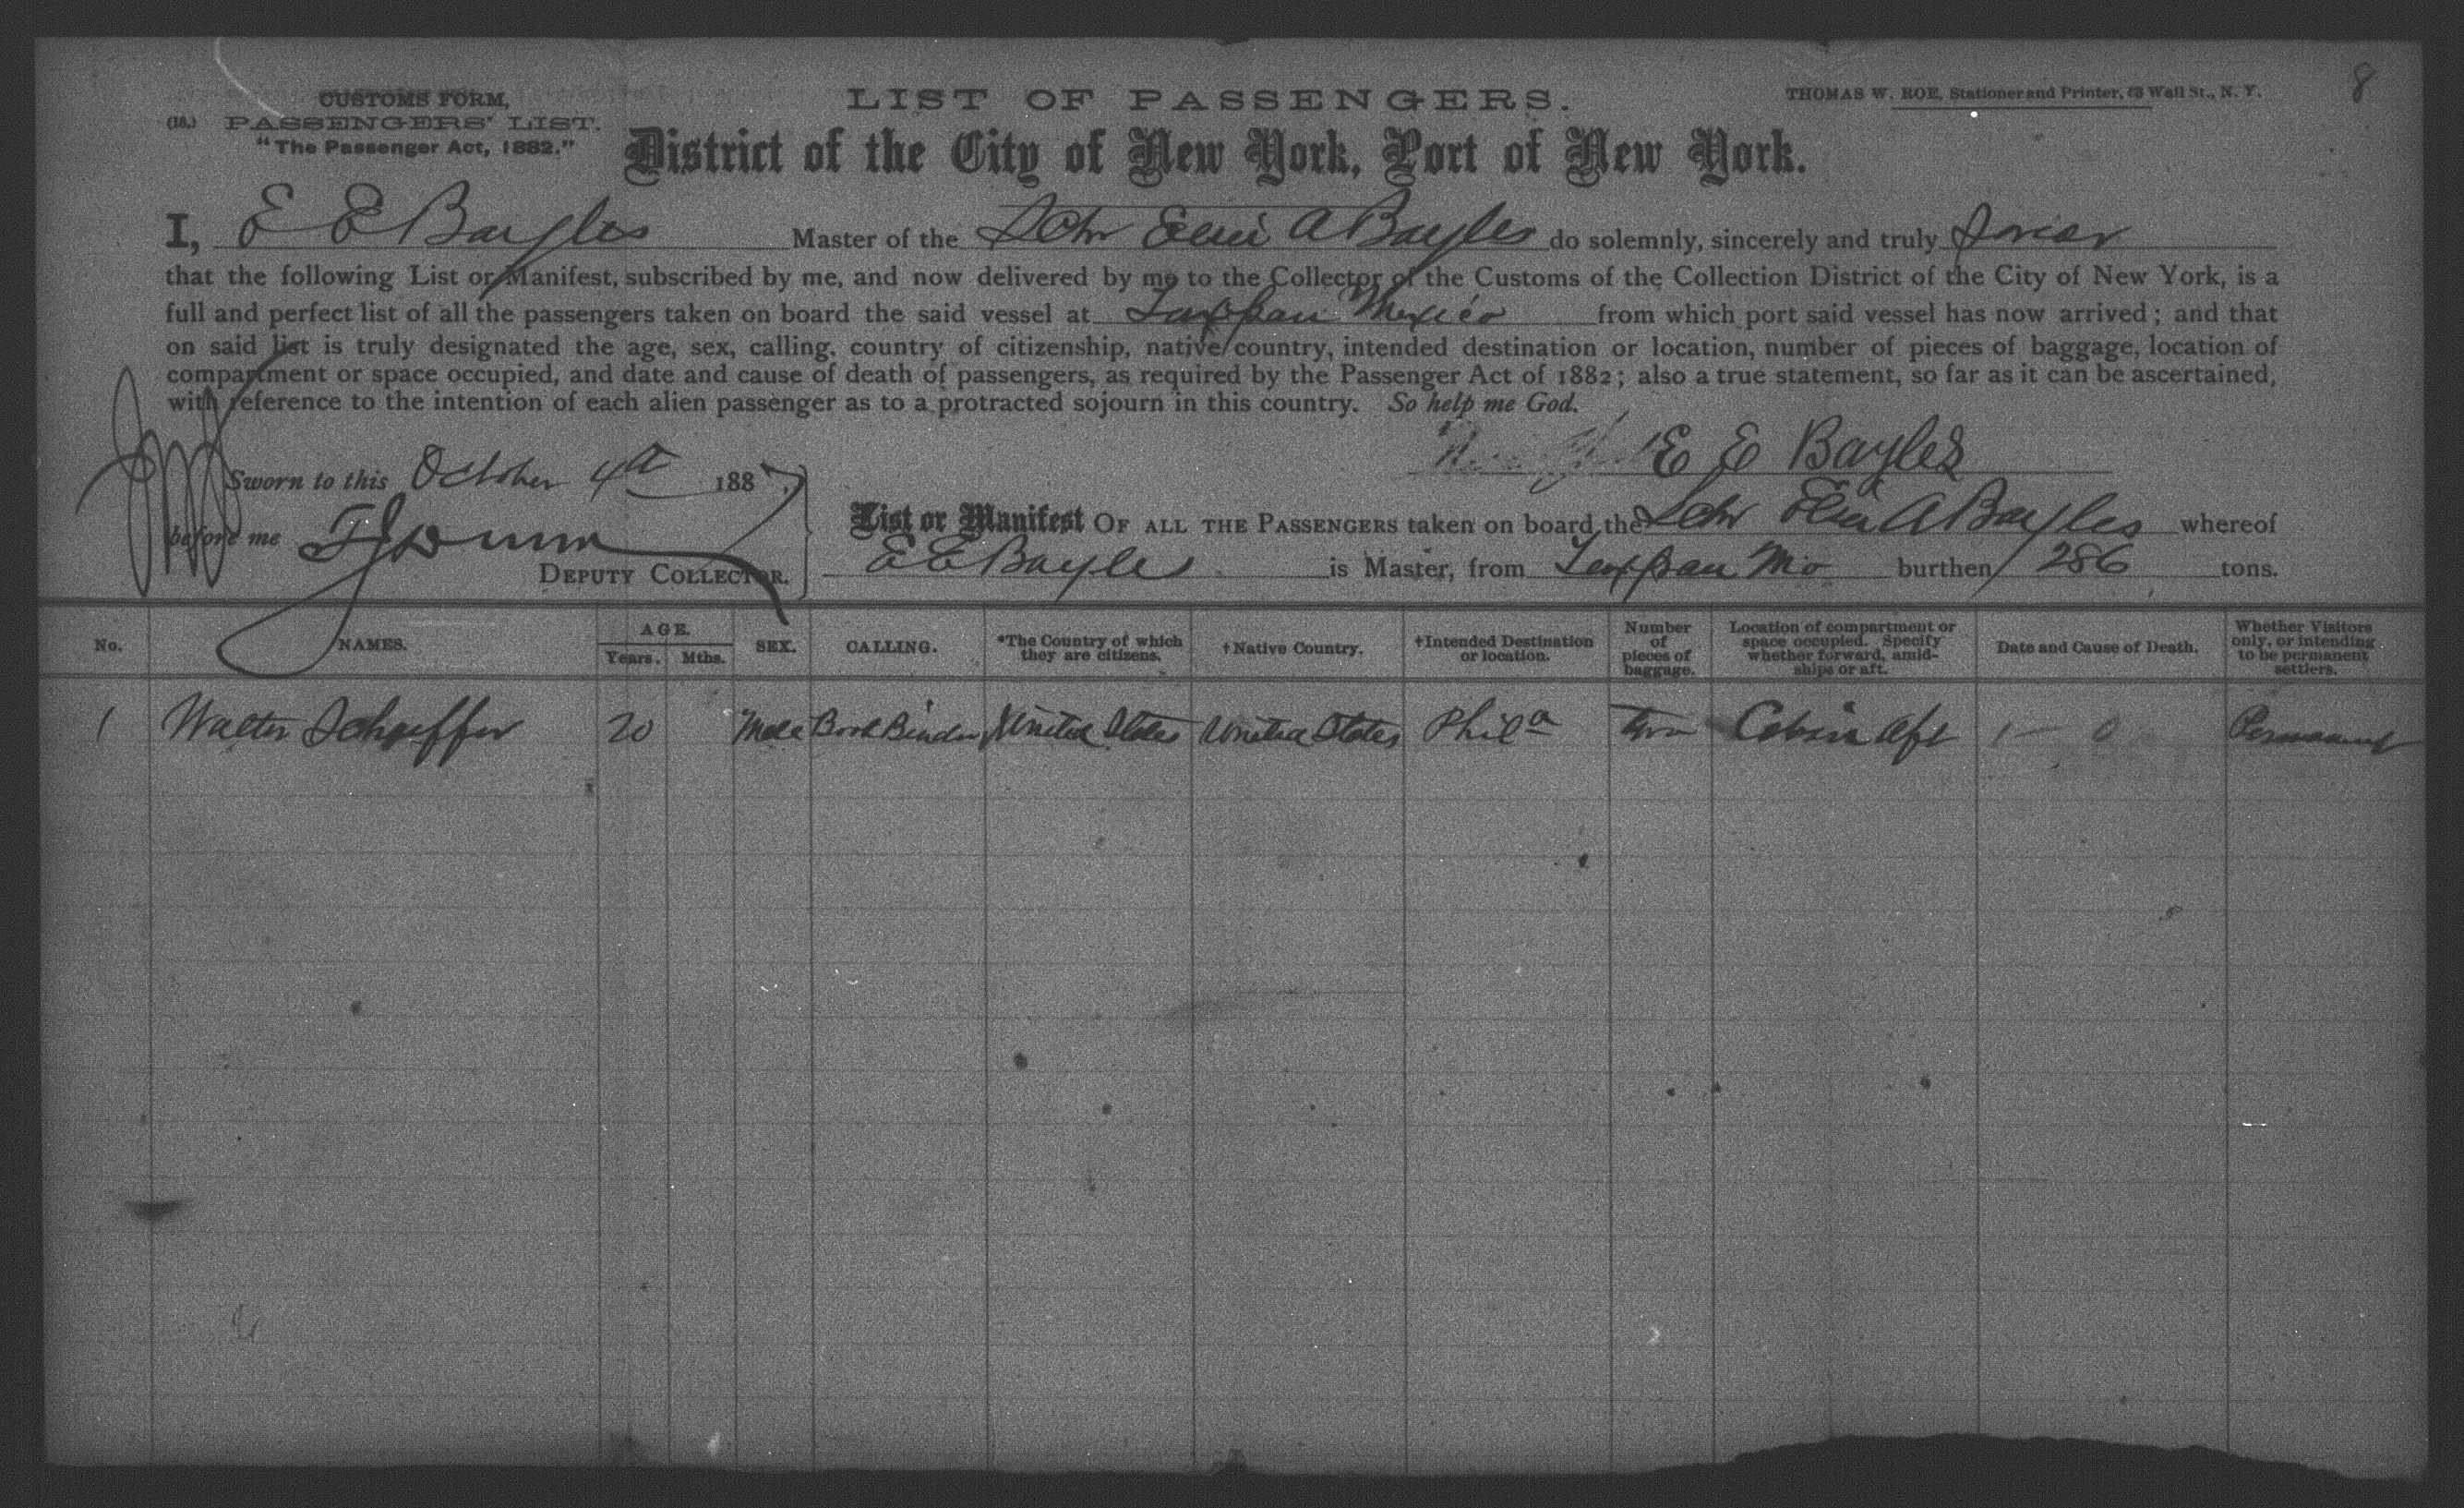 8
CUSTOMS FORM,
(18.) PASSENGERS' LIST.
"The Passenger Act, 1882."
LIST OF PASSENGERS.
THOMAS W. ROE, Stationer and Printer, 63 Wall St., N. Y.
District of the City of New York, Port of New York.
I, E E Bayles Master of the Schr A Bayles do solemnly, sincerely and truly Swear
that the following List or Manifest, subscribed by me, and now delivered by me to the Collector of the Customs of the Collection District of the City of New York, is a
full and perfect list of all the passengers taken on board the said vessel at Tuxpan Mexico from which port said vessel has now arrived; and that
on said list is truly designated the age, sex, calling, country of citizenship, native country, intended destination or location, number of pieces of baggage, location of
compartment or space occupied, and date and cause of death of passengers, as required by the Passenger Act of 1882; also a true statement, so far as it can be ascertained,
with reference to the intention of each alien passenger as to a protracted sojourn in this country. So help me God.
E E Bayles
Sworn to this October 4th 1887,
before me
DEPUTY COLLECTOR.
List or Manifest OF ALL THE PASSENGERS taken on board the Schr A Bayles whereof
E E Bayles is Master, from Tuxpan burthen 286 tons.
No. NAMES. AGE. Years. Mths. SEX. CALLING. *The Country of which they are citizens. †Native Country. †Intended Destination or location. Number of pieces of baggage. Location of compartment or space occupied. Specify whether forward, amidships or aft. Date and Cause of Death. Whether Visitors only, or intending to be permanent settlers.
1 Walter Schaeffer 20 Male Book Binder United States United States Phila Two Cabin Aft Permanent